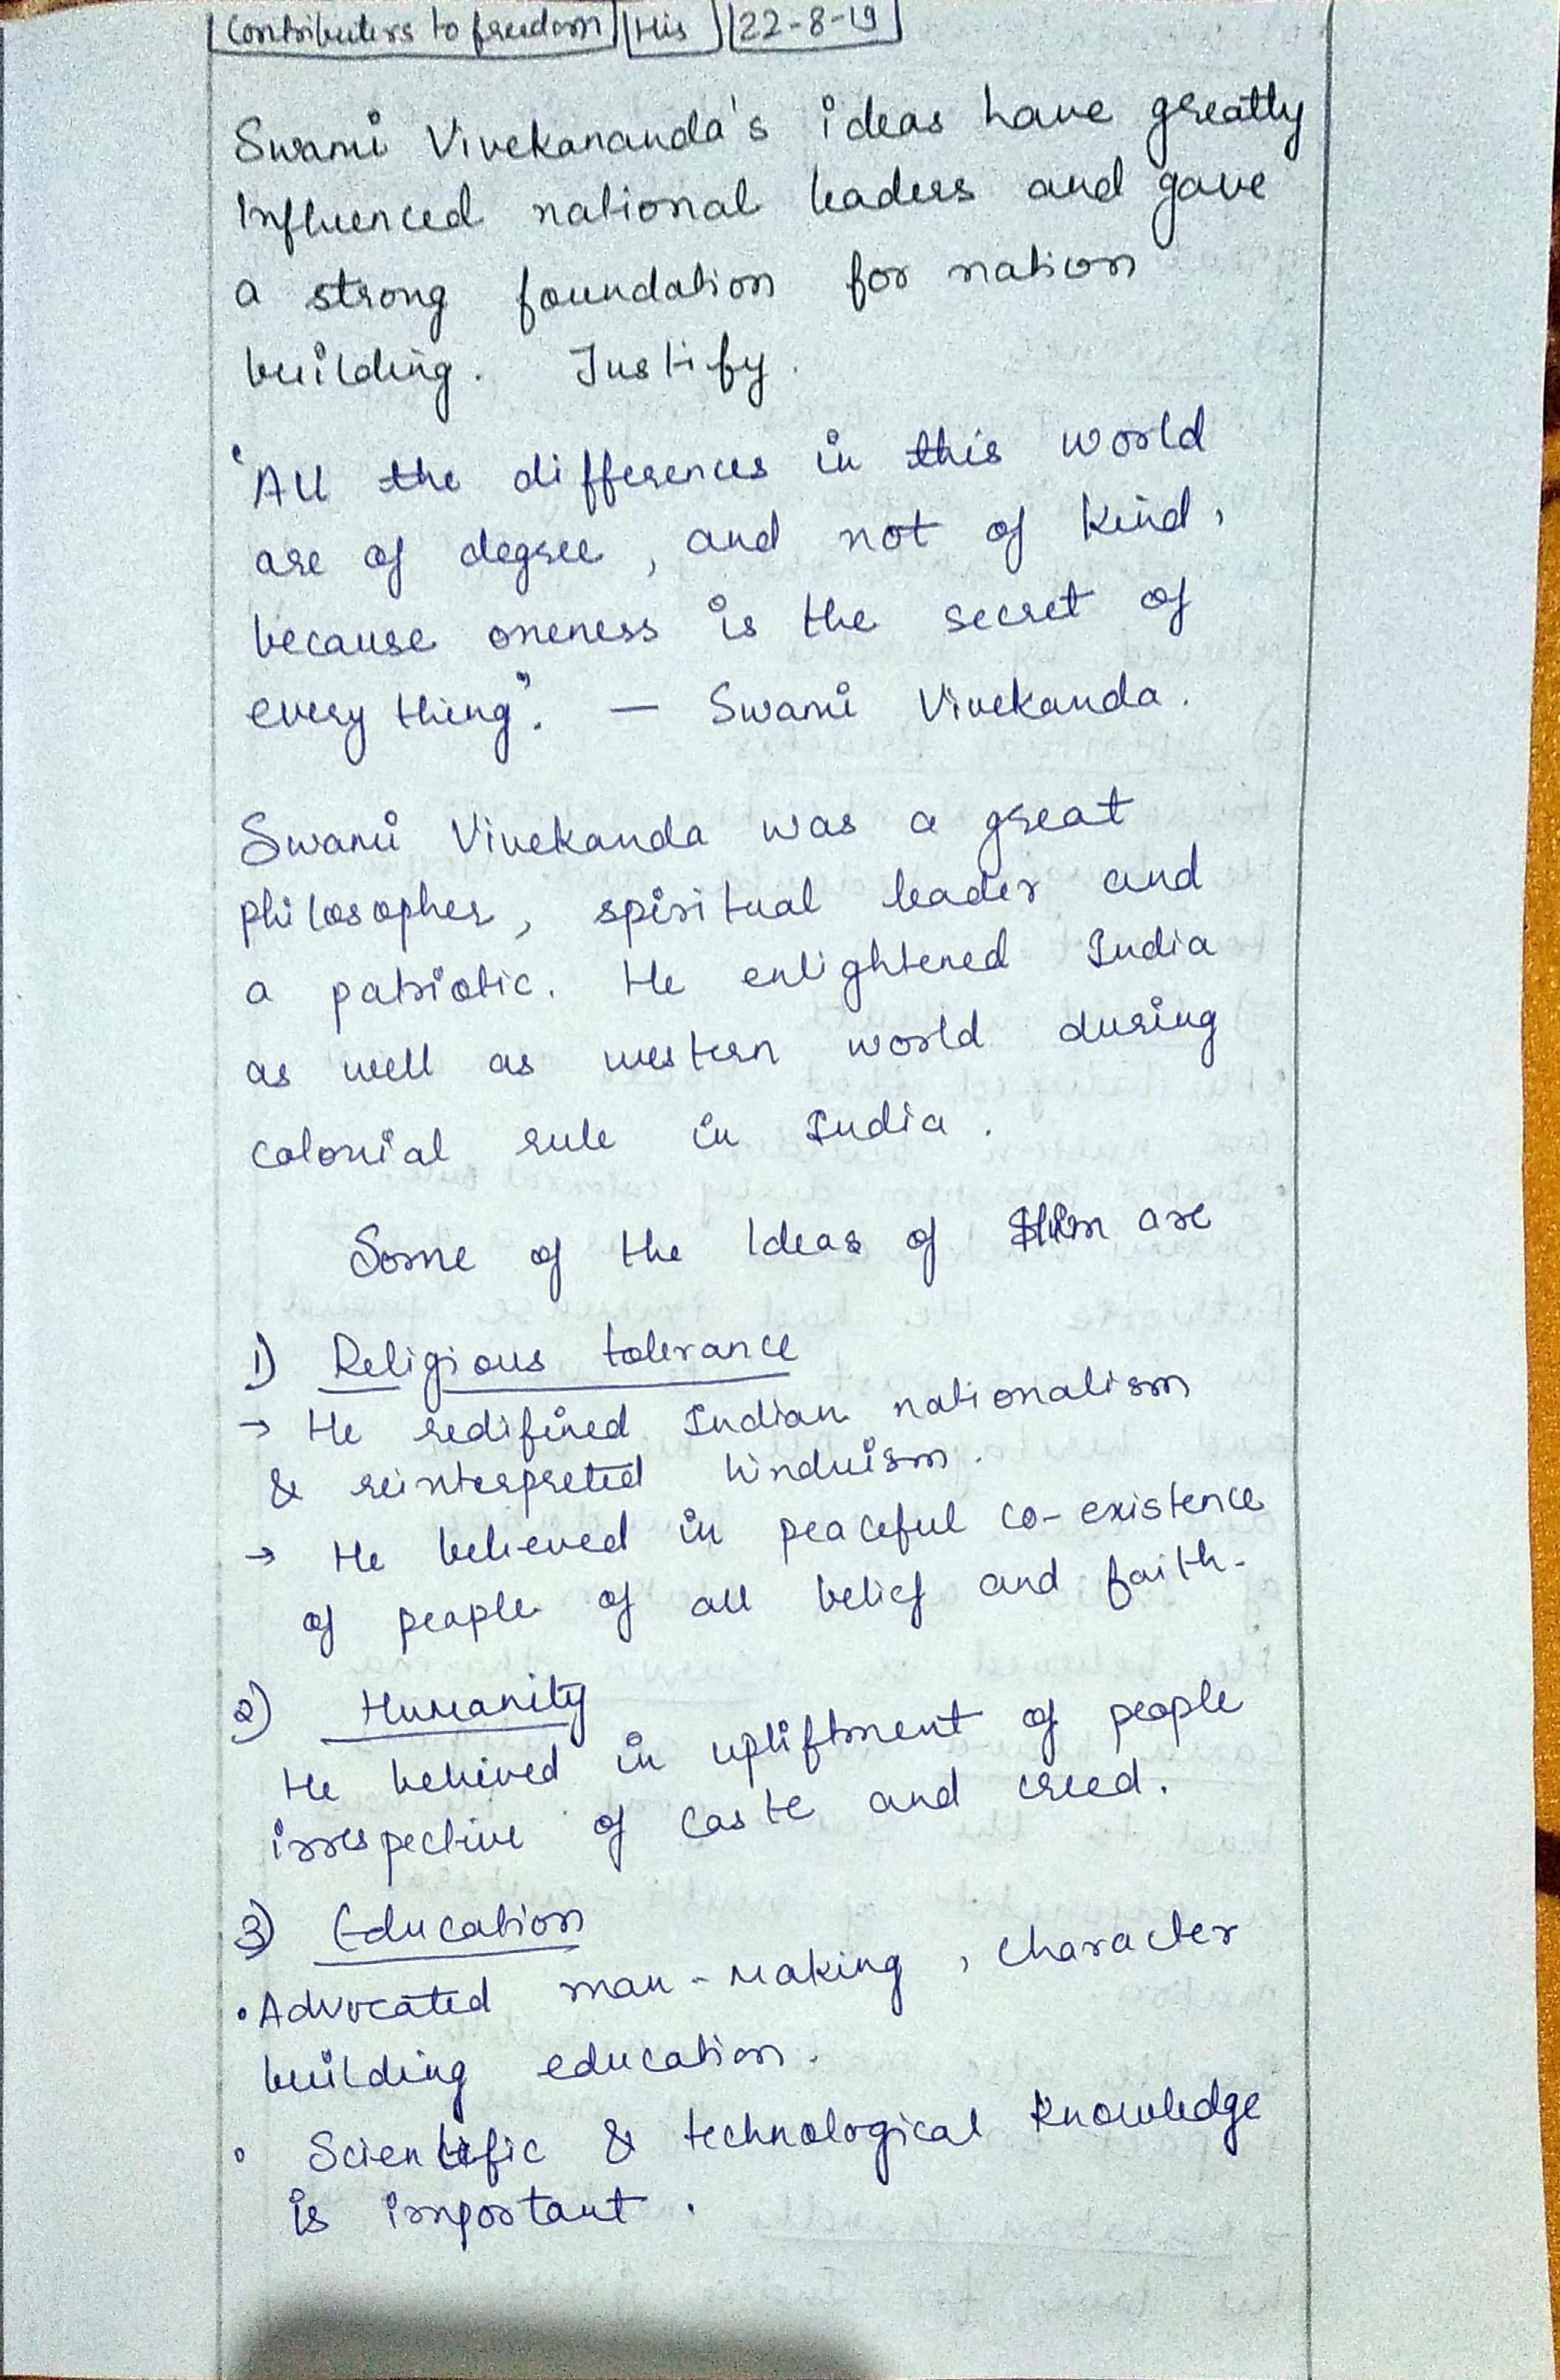 Contributers to freedom His 22-8-19
Swami Vivekananda's ideas have greatly
Influenced national leaders and gave
a strong foundation for nation
building. Justify.
"All the differences in this world
are of degree, and not of kind,
because oneness is the secret of
every thing". — Swami Vivekanda.
Swami Vivekanda was a great
philosopher, spiritual leader and
a patriotic. He enlightened India
as well as western world during
colonial rule in India.
Some of the Ideas of are
1) Religious tolerance
→ He redifined Indian nationalism
& reinterpreted hinduism.
→ He believed in peaceful co-existence
of people of all belief and faith.
2) Humanity
He belived in upliftment of people
irrespective of caste and creed.
3) Education
• Advocated man-making, character
building education.
• Scientific & technological knowledge
is important.